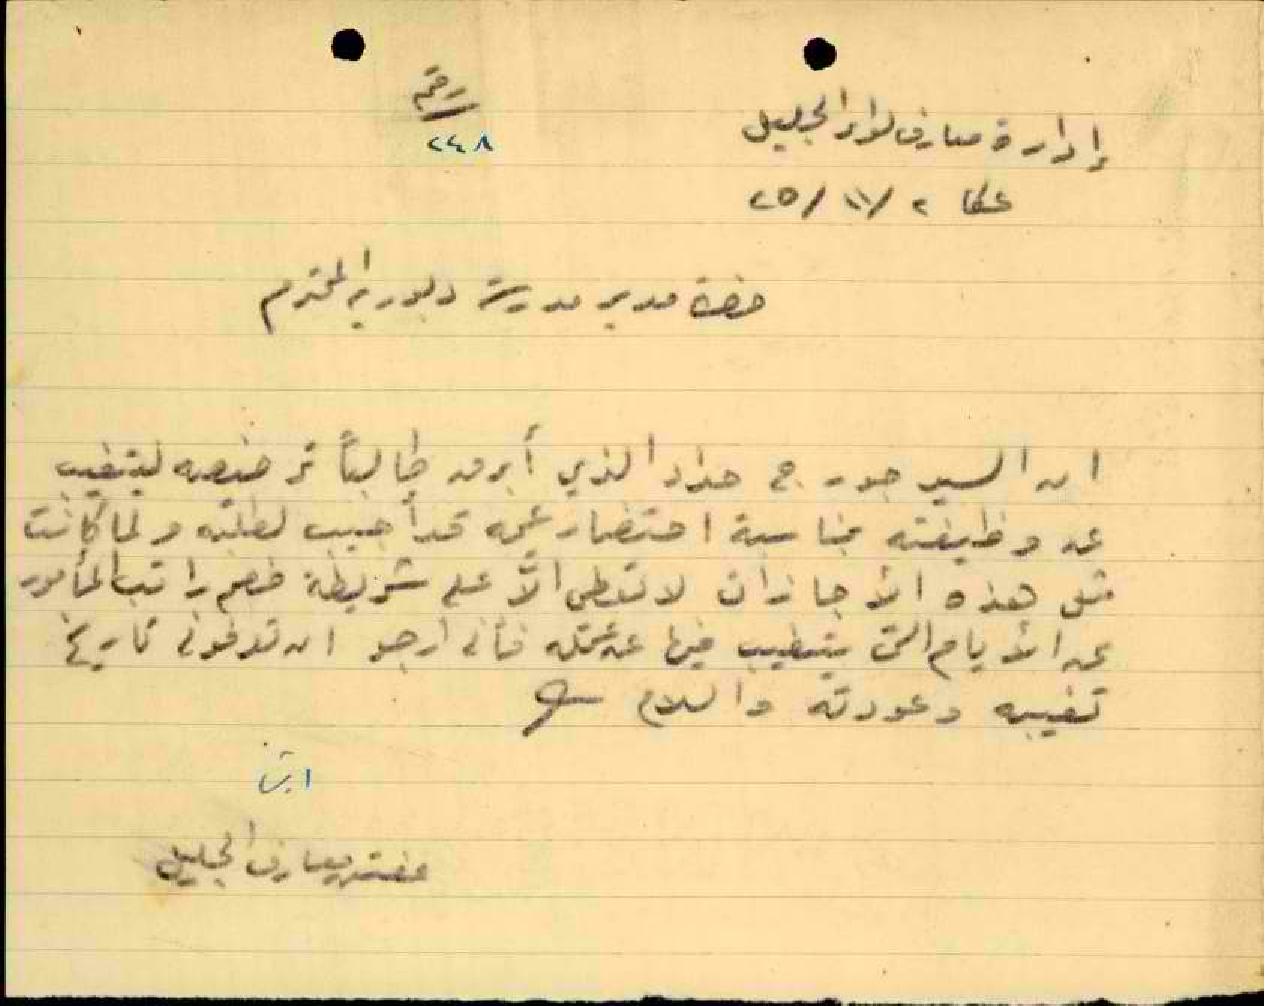 إدارة معارف لواء الجليل
عكا ٢/١١/٢٥
٢٤٨
حضرة مدير مدرسة دبورية المحترم
ان السيد جورج حداد الذي أبرق طالباً ترخيصه ليتغيب
عن وظيفته بمناسبة احتضار عمه قد أجيب لطلبه ولما كانت
مثل هذه الأجازات لا تعطى الّا على شريطة خصم راتب المأمور
عن الأيام التي يتغيب فيها عن عمله فأني ارجو ان تعرفوني تاريخ
تغيبه وعودته والسلام
مفتش معارف الجليل